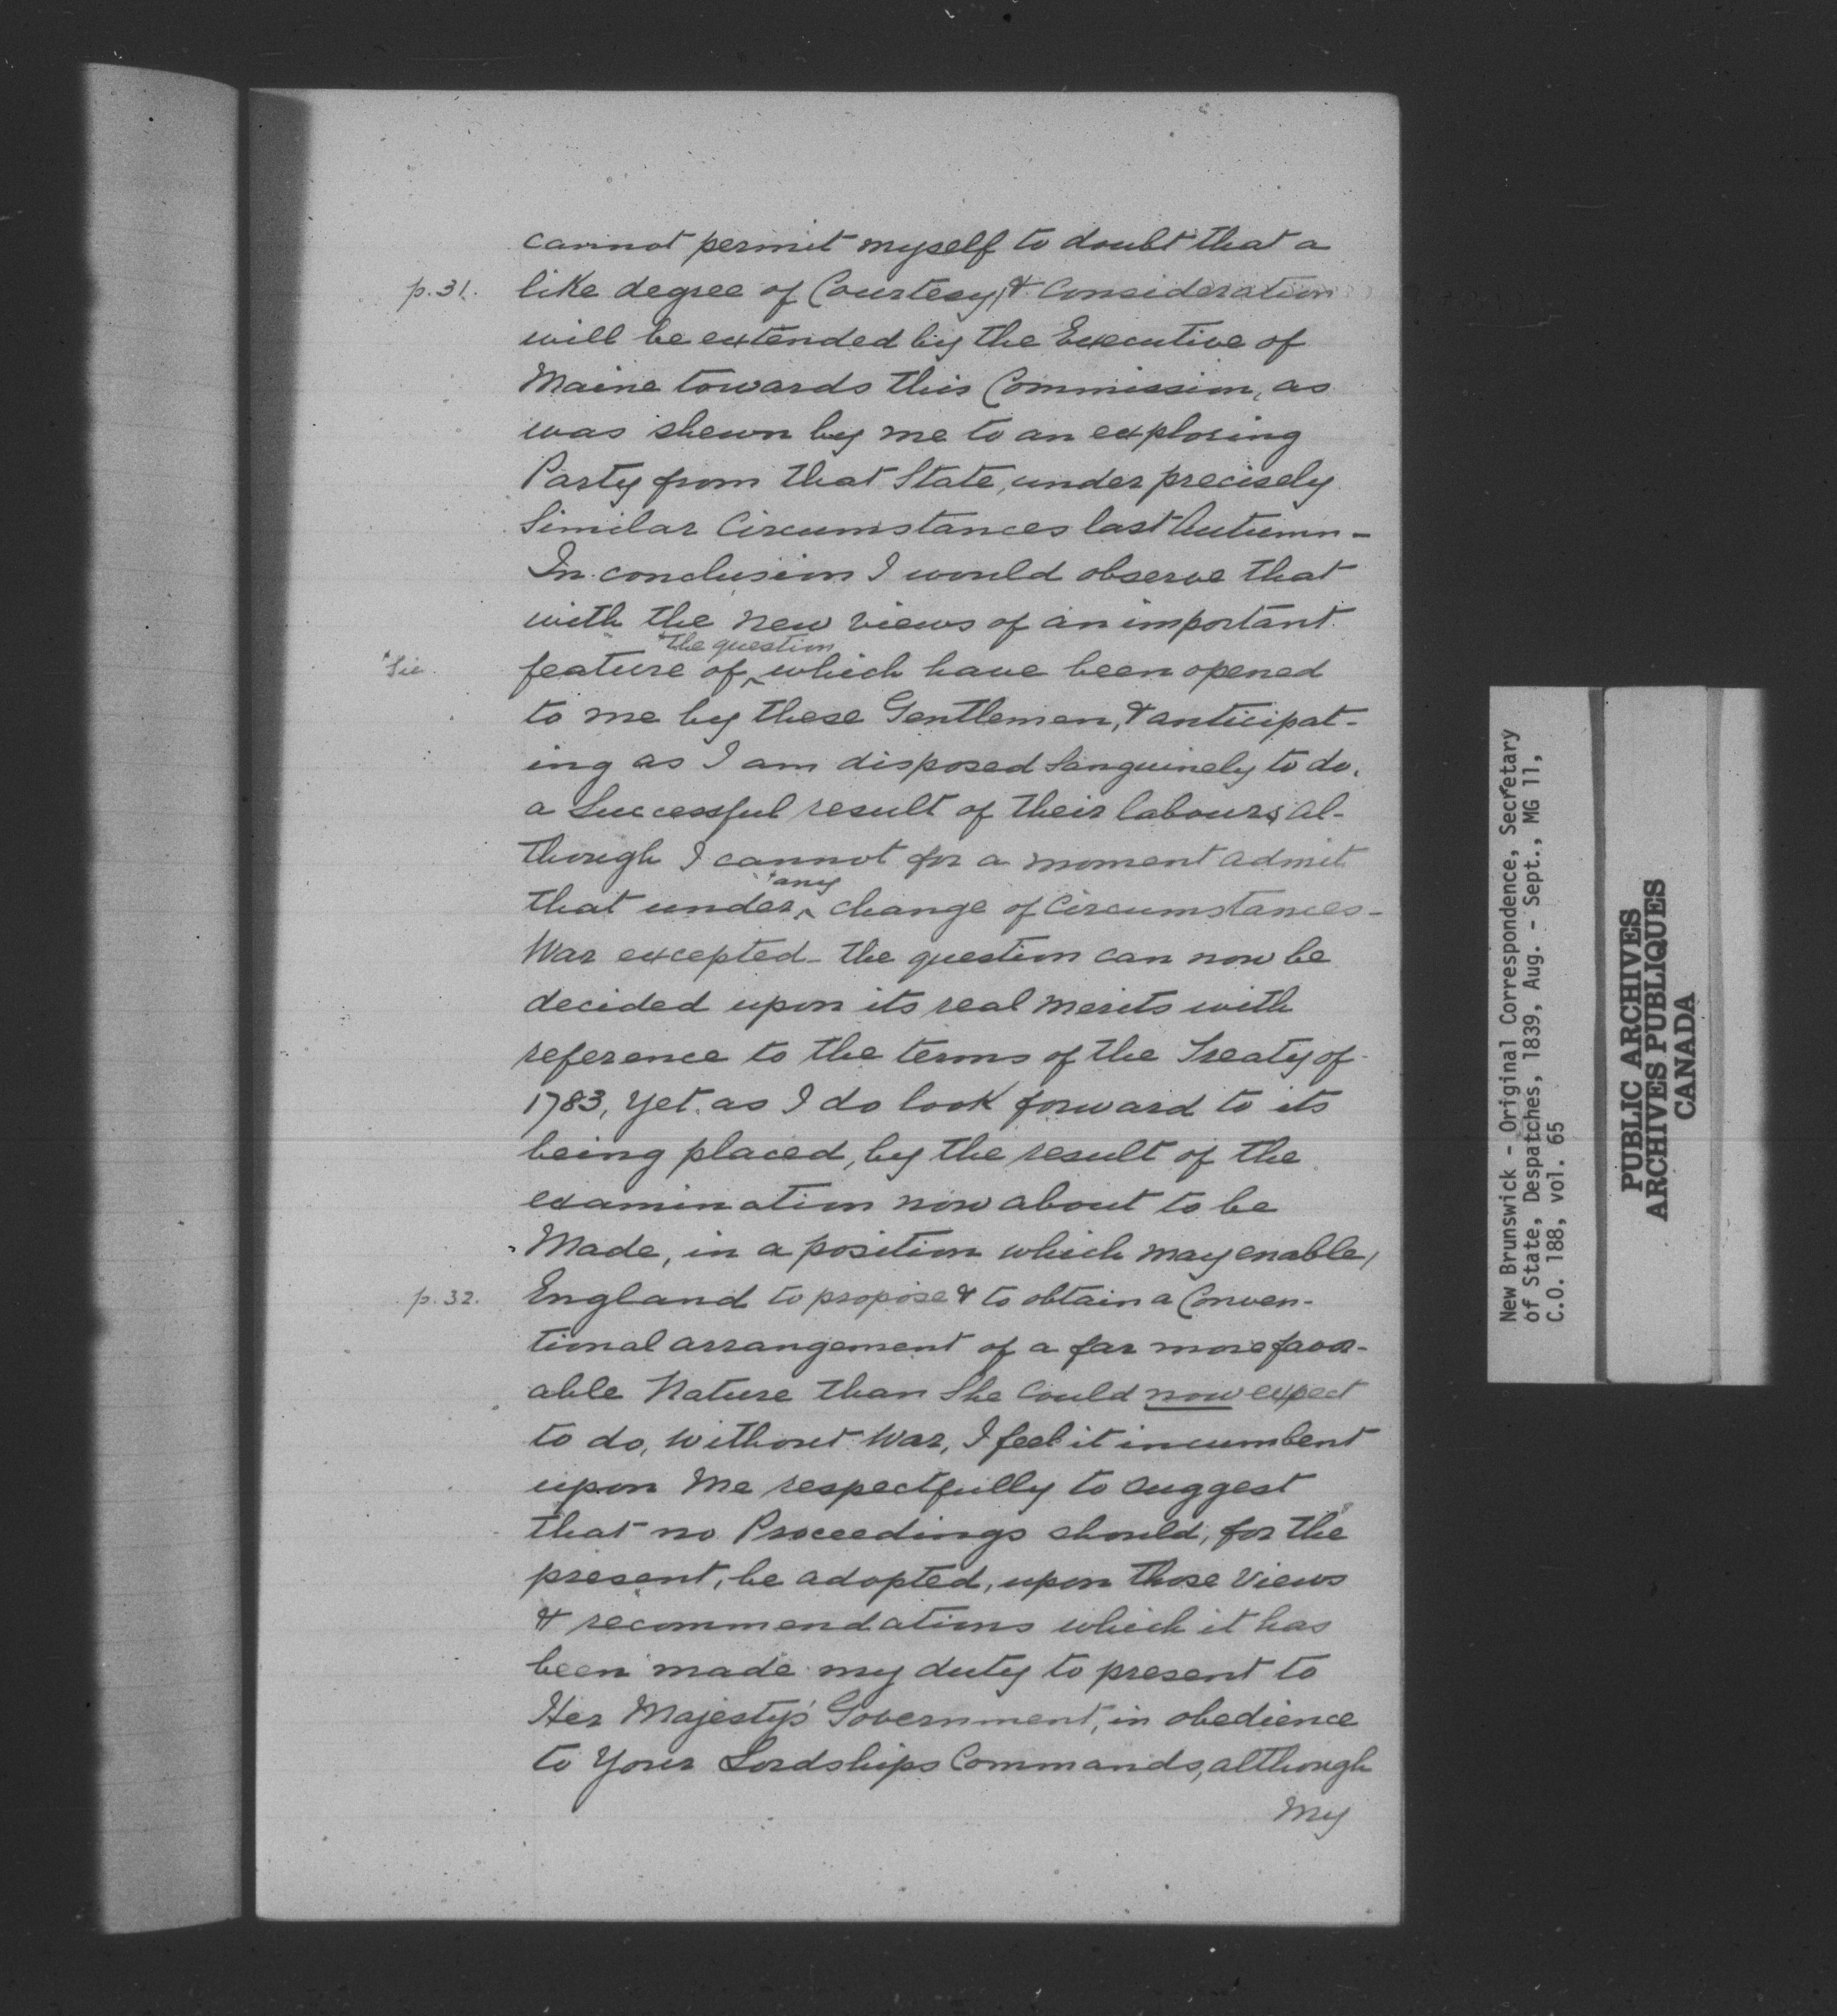 cannot permit myself to doubt that a
p.31. like degree of Courtesy, & Consideration
will be extended by the Executive of
Maine towards this Commission, as
was shewn by me to an exploring
Party from that State, under precisely
Similar Circumstances last Autumn -
In conclusion I would observe that
with the new views of an important
the question
Sic feature of ‸ which have been opened
to me by these Gentlemen, & anticipat-
ing as I am disposed Sanguinely to do,
a Successful result of their labours, al-
though I cannot for a moment admit
any
that under ‸ change of Circumstances -
War excepted - the question can now be
decided upon its real merits with
reference to the terms of the Treaty of
1783, yet as I do look forward to its
being placed, by the result of the
examination now about to be
Made, in a position which may enable,
p.32. England to propose & to obtain a Conven-
tional arrangement of a far more favor-
able Nature than She Could now expect
to do, without War, I feel it incumbent
upon Me respectfully to suggest
that no Proceedings should, for the
present, be adopted, upon those Views
& recommendations which it has
been made my duty to present to
Her Majesty's Government, in obedience
to Your Lordships Commands, although
My
New Brunswick - Original Correspondence, Secretary
of State, Despatches, 1839, Aug. - Sept., MG 11,
C.O. 188, vol. 65
PUBLIC ARCHIVES
ARCHIVES PUBLIQUES
CANADA